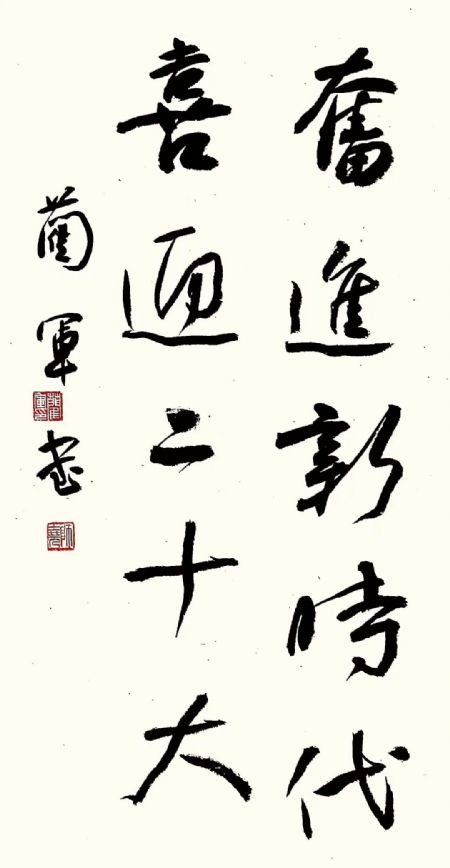 奮進新時代
喜迎二十大
蔺軍书